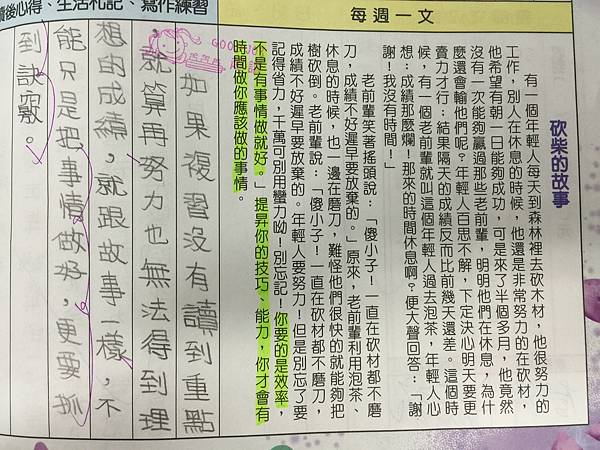 每週一文
讀後心得、生活札記、寫作練習
砍柴的故事
有一個年輕人每天到森林裡去砍木材，他很努力的
工作，別人在休息的時候，他還是非常努力的在砍材，
他希望有朝一日能夠成功，可是來了半個多月，他竟然
沒有一次能夠贏過那些老前輩，明明他們在休息，為什
麼還會輸他們呢？年輕人百思不解，下定決心明天要更
賣力才行；結果隔天的成績反而比前幾天還差。這個時
候，有一個老前輩就叫這個年輕人過去泡茶，年輕人心
想：成績那麼爛！那來的時間休息啊？便大聲回答：「謝
謝！我沒有時間！」
老前輩笑著搖頭說：「傻小子！一直在砍材都不磨
刀，成績不好遲早要放棄的。」原來，老前輩利用泡茶、
休息的時候，也一邊在磨刀，難怪他們很快的就能夠把
樹砍倒。老前輩說：「傻小子！一直在砍材都不磨刀，
成績不好遲早要放棄的。年輕人要努力！但是別忘了要
記得省力，千萬可別用蠻力呦！別忘記！你要的是效率，
不是有事情做就好。」提昇你的技巧、能力，你才會有
時間做你應該做的事情。
GOOD
如果複習沒有讀到重點
，就算再努力也無法得到理
想的成績，就跟故事一樣，不
能只是把事情做好，更要抓
到訣竅。